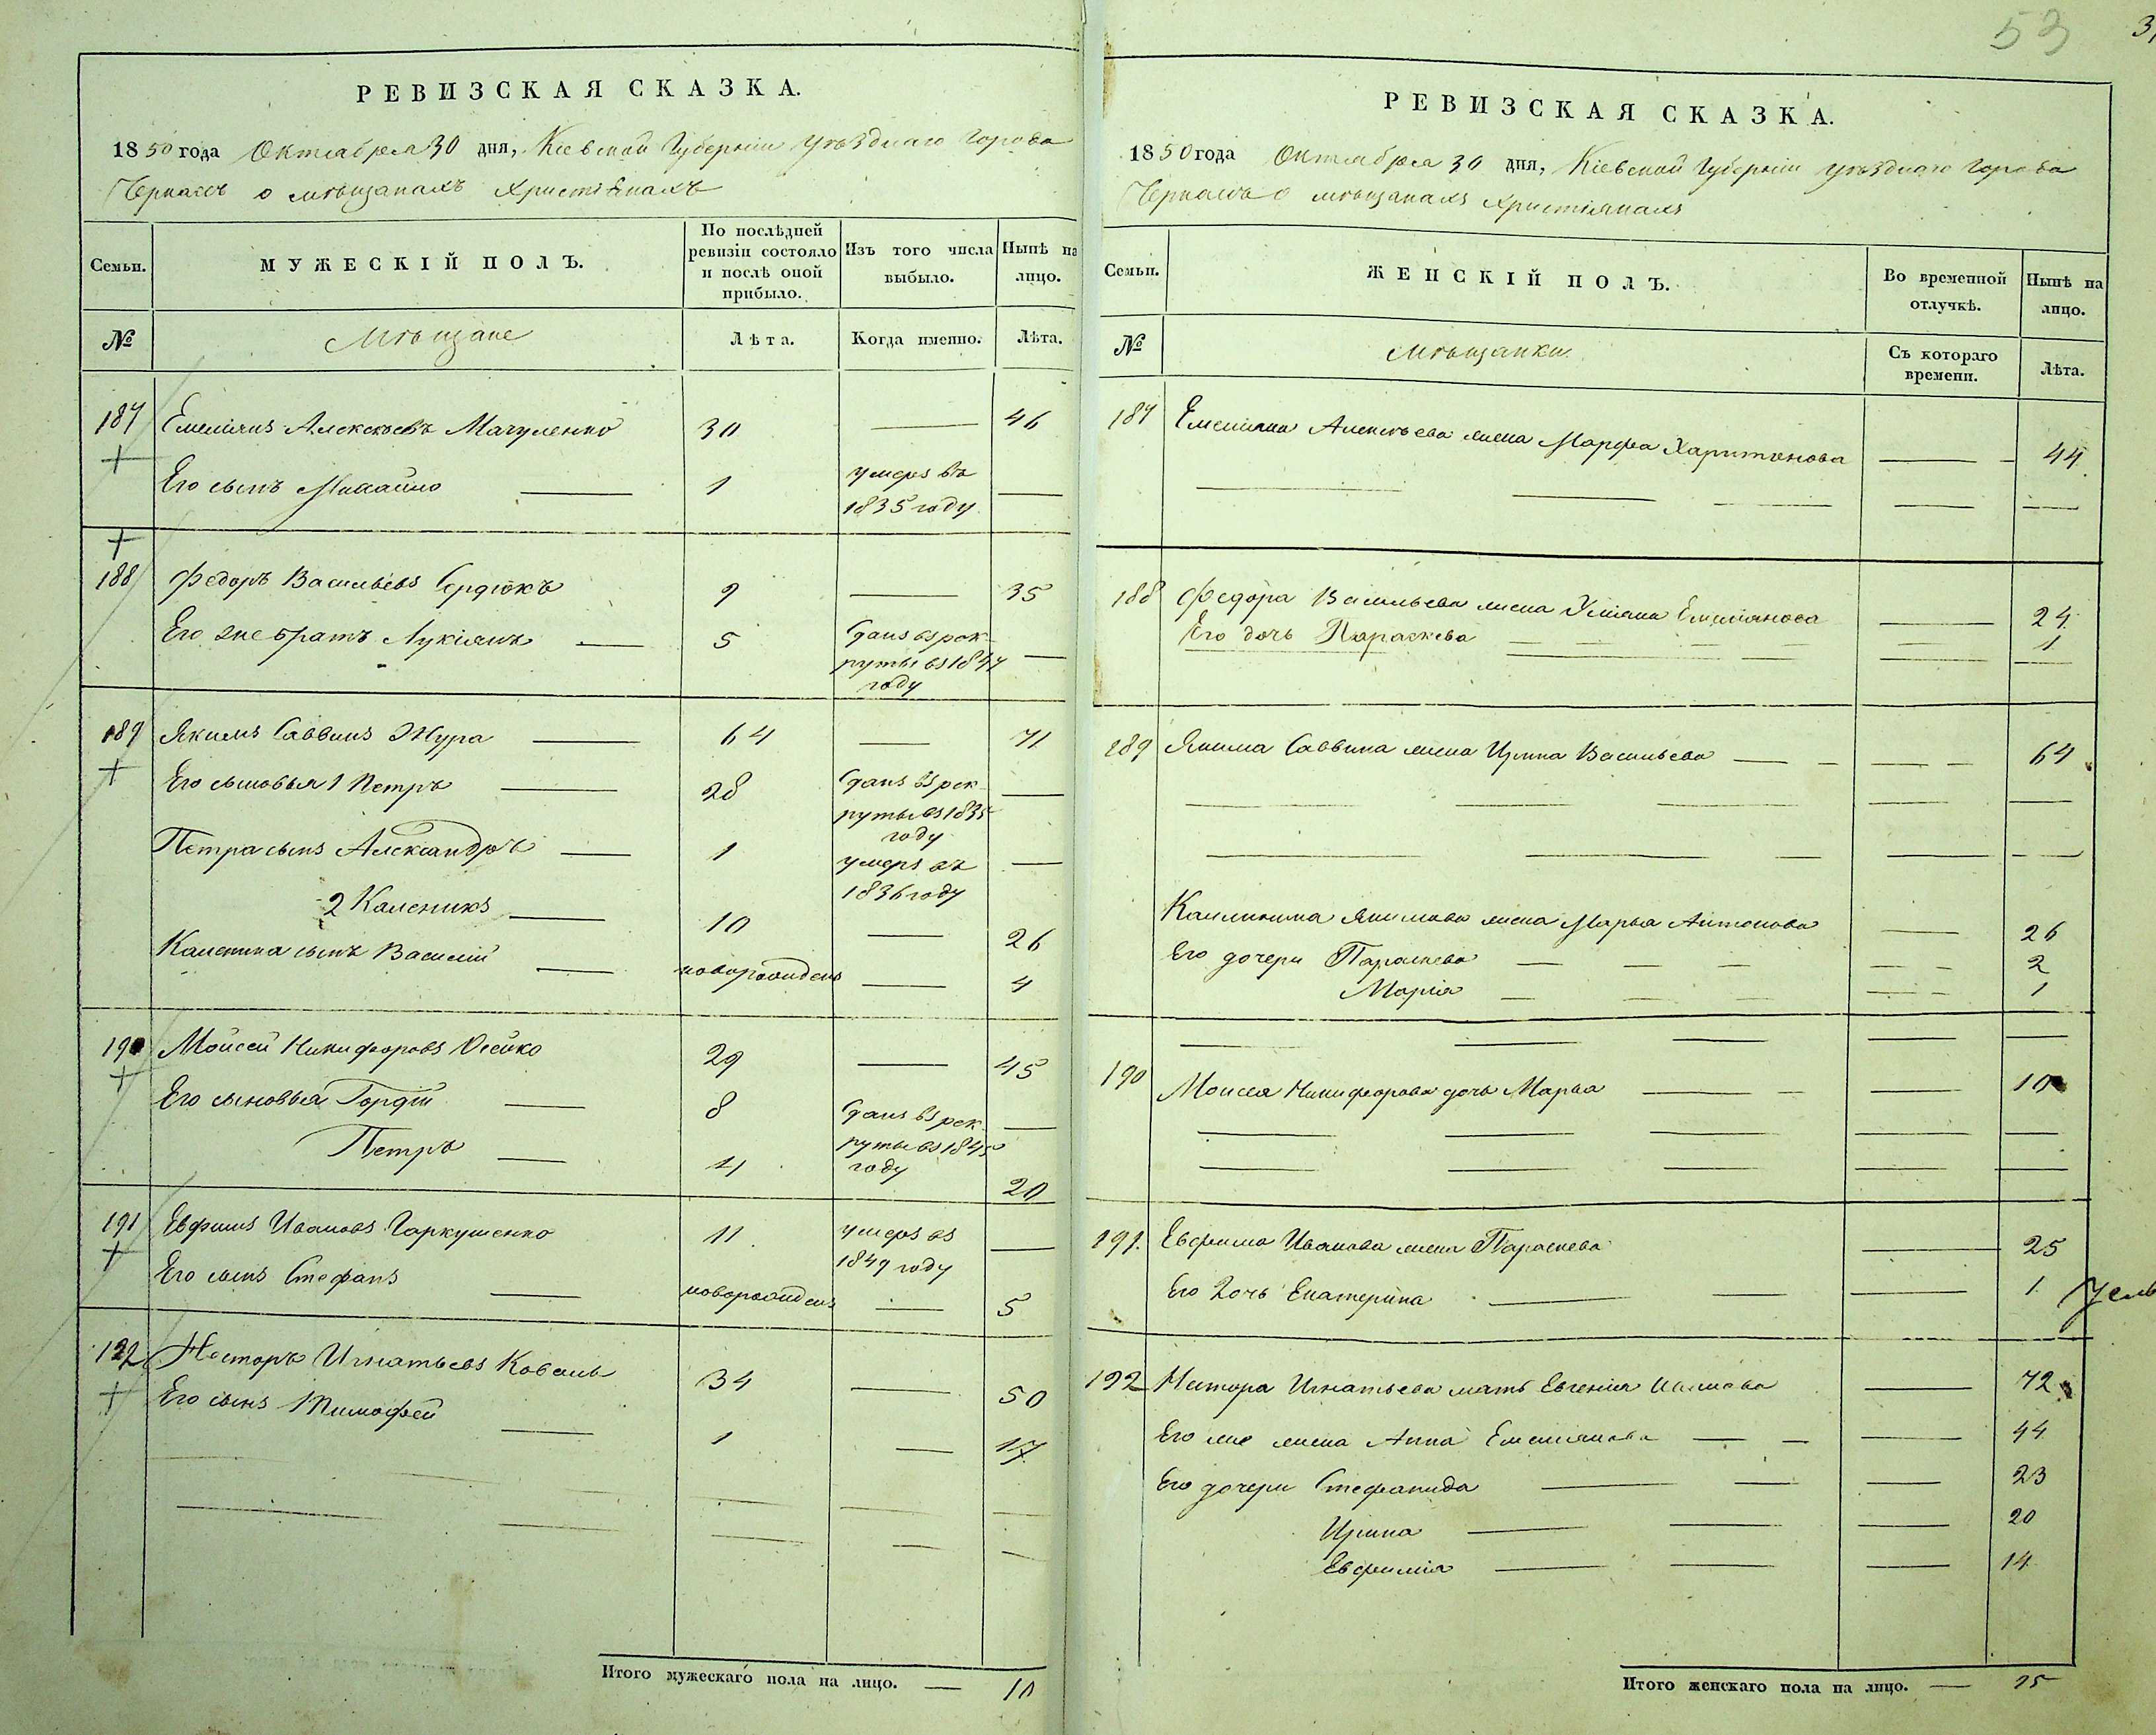 53
РЕВИЗСКАЯ СКАЗКА.
1850 года Октября 30 дня, Кіевской Губерніи уѣзднаго Города
Черкасъ о мѣщанахъ Христіянахъ
Семьи.
МУЖЕСКІЙ ПОЛЪ.
По послѣдней ревизіи состояло и послѣ оной прибыло.
Изъ того числа выбыло.
Нынѣ на лицо.
№
Мѣщане
Лѣта.
Когда именно.
Лѣта.
187 Емеліянъ Алексѣевъ Мачуленко 30 — 46
Его сынъ Михайло — 1 умеръ въ 1835 году —
188 Федоръ Васильевъ Сердюкъ 9 — 35
Его же братъ Лукіянъ — 5 Сданъ въ рекруты въ 1847 году —
189 Якимъ Саввинъ Жура — 64 — 71
Его сыновья 1 Петръ — 28 Сданъ въ рекруты въ 1835 году —
Петра сынъ Александръ — 1 умеръ въ 1836 году —
2 Каленикъ — 10 — 26
Каленика сынъ Василій — новорожденъ — 4
190 Мойсей Никифоровъ Осейко 29 — 45
Его сыновья Гордій — 8 Сданъ въ рекруты въ 1845 году —
Петръ — 4 20
191 Евфимъ Ивановъ Гаркушенко 11 умеръ въ 1849 году —
Его сынъ Стефанъ — новорожденъ — 5
192 Несторъ Игнатьевъ Коваль 34 — 50
Его сынъ Тимофей — 1 — 17
Итого мужескаго пола на лицо. — 10
РЕВИЗСКАЯ СКАЗКА.
1850 года Октября 30 дня, Кіевской Губерніи уѣзднаго Города
Черкасъ о мѣщанахъ Христіянахъ
Семьи.
ЖЕНСКІЙ ПОЛЪ.
Во временной отлучкѣ.
Нынѣ на лицо.
№
Мѣщанки.
Съ котораго времени.
Лѣта.
187 Емеліяна Алексѣева жена Марфа Харитонова — 44
188 Федора Васильева жена Уліяна Емеліянова — 24
Его дочь Параскева — 1
189 Якима Саввина жена Ирина Васильева — 64
Каленика Якимова жена Марья Антонова — 26
Его дочери Параскева — 2
Марія — 1
190 Моисея Никифорова дочь Марья — 10
191. Евфима Иванова жена Параскева — 25
Его дочь Екатерина — 1
192 Нестора Игнатьева мать Евгенія Иванова — 72
Его же жена Анна Емеліянова — 44
Его дочери Стефанида — 23
Ирина — 20
Евфимія — 14
Итого женскаго пола на лицо. — 15